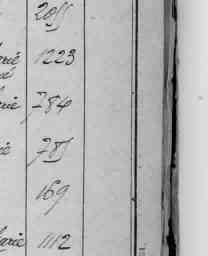 2055
rie 1223
rie 784
ie 785
169
Marie 1112